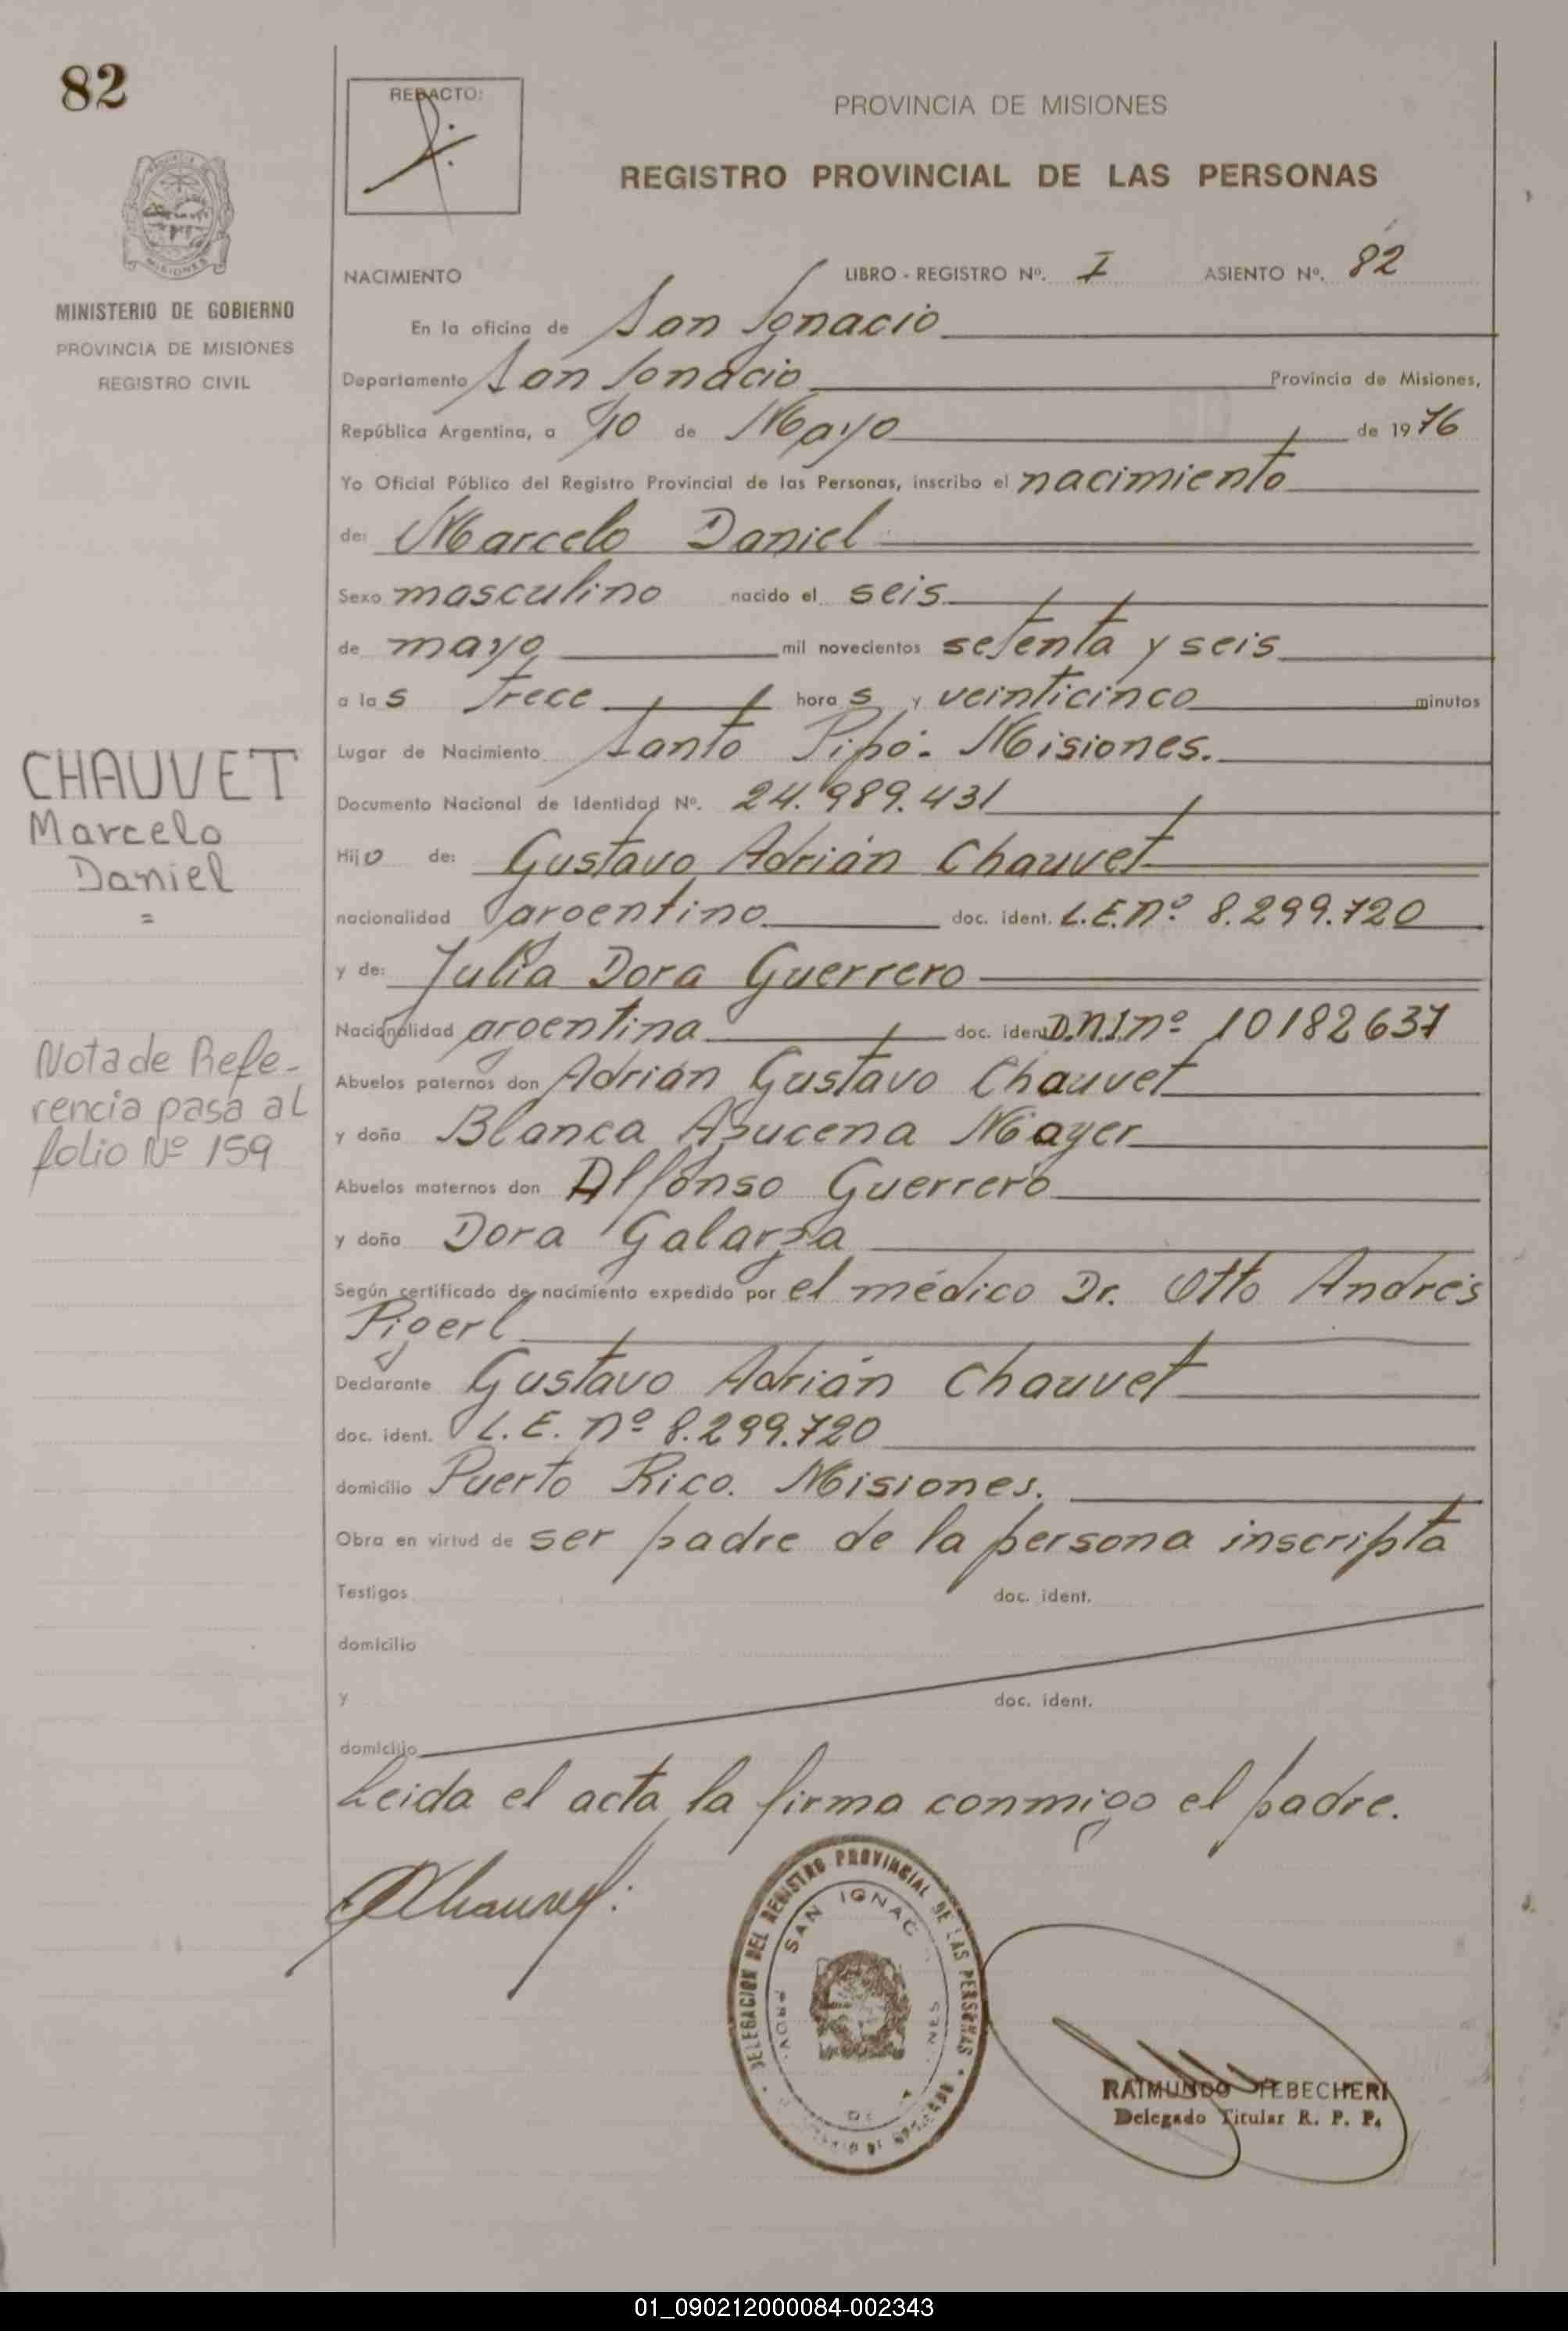 82
REDACTO:
PROVINCIA DE MISIONES
REGISTRO PROVINCIAL DE LAS PERSONAS
MISIONES
MINISTERIO DE GOBIERNO
PROVINCIA DE MISIONES
REGISTRO CIVIL
NACIMIENTO LIBRO - REGISTRO Nº. I ASIENTO Nº. 82
En la oficina de San Ignacio
Departamento San Ignacio Provincia de Misiones,
República Argentina, a 10 de Mayo de 1976
Yo Oficial Público del Registro Provincial de las Personas, inscribo el nacimiento
de: Marcelo Daniel
Sexo masculino nacido el seis
de mayo mil novecientos setenta y seis
a las trece horas y veinticinco minutos
Lugar de Nacimiento Santo Pipó - Misiones.
Documento Nacional de Identidad Nº. 24.989.431
Hijo de: Gustavo Adrián Chauvet
nacionalidad argentino doc. ident. L.E.nº 8.299.720
y de: Julia Dora Guerrero
Nacionalidad argentina doc. ident. D.N.I.nº 10182637
Abuelos paternos don Adrián Gustavo Chauvet
y doña Blanca Azucena Mayer
Abuelos maternos don Alfonso Guerrero
y doña Dora Galarza
Según certificado de nacimiento expedido por el médico Dr. Otto Andrés
Pigerl
Declarante Gustavo Adrián Chauvet
doc. ident. L.E. nº 8.299.720
domicilio Puerto Rico. Misiones.
Obra en virtud de ser padre de la persona inscripta
Testigos doc. ident.
domicilio
y doc. ident.
domicilio
Leida el acta la firma conmigo el padre.
CHAUVET
Marcelo
Daniel
=
Nota de Refe-
rencia pasa al
folio Nº 159
DELEGACION DEL REGISTRO PROVINCIAL DE LAS PERSONAS
SAN IGNAC
PROV.
RAIMUNDO TEBECHERI
Delegado Titular R. P. P.
01_090212000084-002343